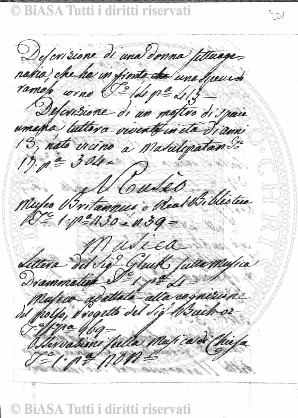 © BiASA Tutti i diritti riservati
Descrizione di una donna settuage-
naria, che ha in fronte una specie
ramoso corno T.° p.a 43
Descrizione di un mostro di specie
umana tuttora vivente in età di anni
13, nato vicino a Masulipatan T.°
17. p.a 304 =
Museo
Museo Britannico o Real Biblioteca
T.° 1. p.a
Musica
Lettera del Sig.r Gluck sulla Musica
Drammatica T.° 1. p.a
Musico adattata alla cognizione
del polso, progetto del Sig.r
T.° p.a 969 =
Osservazioni sulla Musica di Chiesa
T.° 1. p.a
© BiASA Tutti i diritti riservati